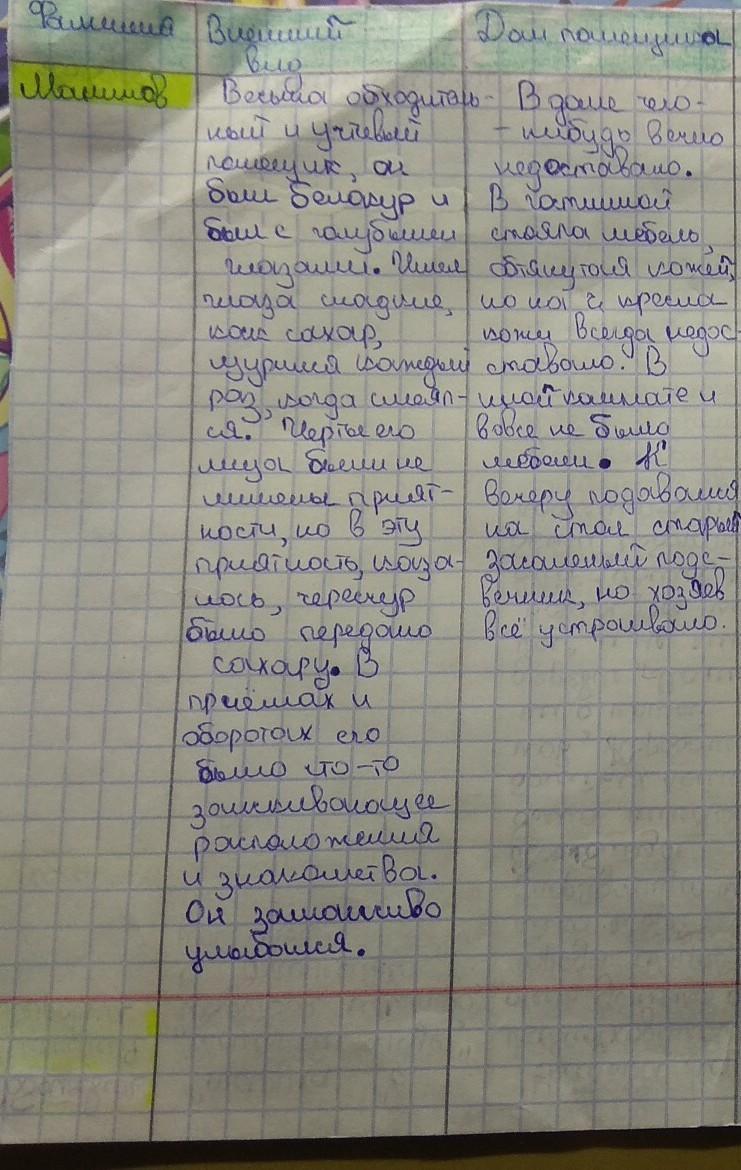 Фамилия
Внешний
вид
Дом помещика
Манилов
Весьма обходитель-
ный и учтивый
помещик, он
был белокур и
был с голубыми
глазами. Имел
глаза сладкие,
как сахар,
щурился каждый
раз, когда смеял-
ся. Черты его
лица были не
лишены прият-
ности, но в эту
приятность, каза-
лось, чересчур
было передано
сахару. В
приёмах и
оборотах его
было что-то
заискивающее
расположения
и знакомства.
Он заманчиво
улыбался.
В доме чего-
-нибудь вечно
недоставало.
В гостиной
стояла мебель,
обтянутая кожей,
но на 2 кресла
кожи всегда недос-
ставало. В
иной комнате и
вовсе не было
мебели. К
вечеру подавался
на стол старый
засаленный подс-
вечник, но хозяев
всё устраивало.